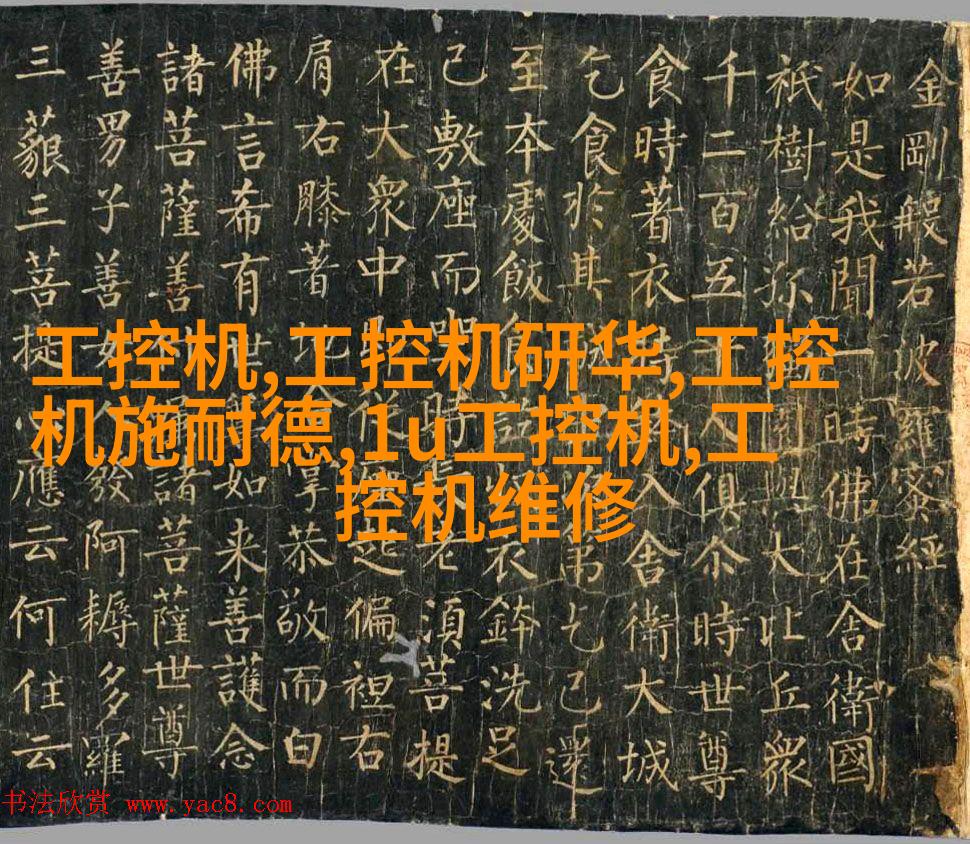 金剛般若波羅蜜經
如是我聞一時佛在舍衛國
祇樹給孤園與大比丘眾
千二百五十人俱尒時世尊
食時著衣持入舍衛大城
乞食於其城第乞已還
至本處飯食訖收衣鉢洗足
已敷座而坐時長老須菩提
在大眾中即從座起偏袒右
肩右膝著地合掌恭敬而白
佛言希有世尊如来善護念
諸菩薩善付囑諸菩薩世尊
善男子善女人發阿耨多羅
三藐三菩提心應云何住云
工控机,工控机研华,工控
机施耐德,1u工控机,工
控机维修
书法欣赏 www.yac8.com